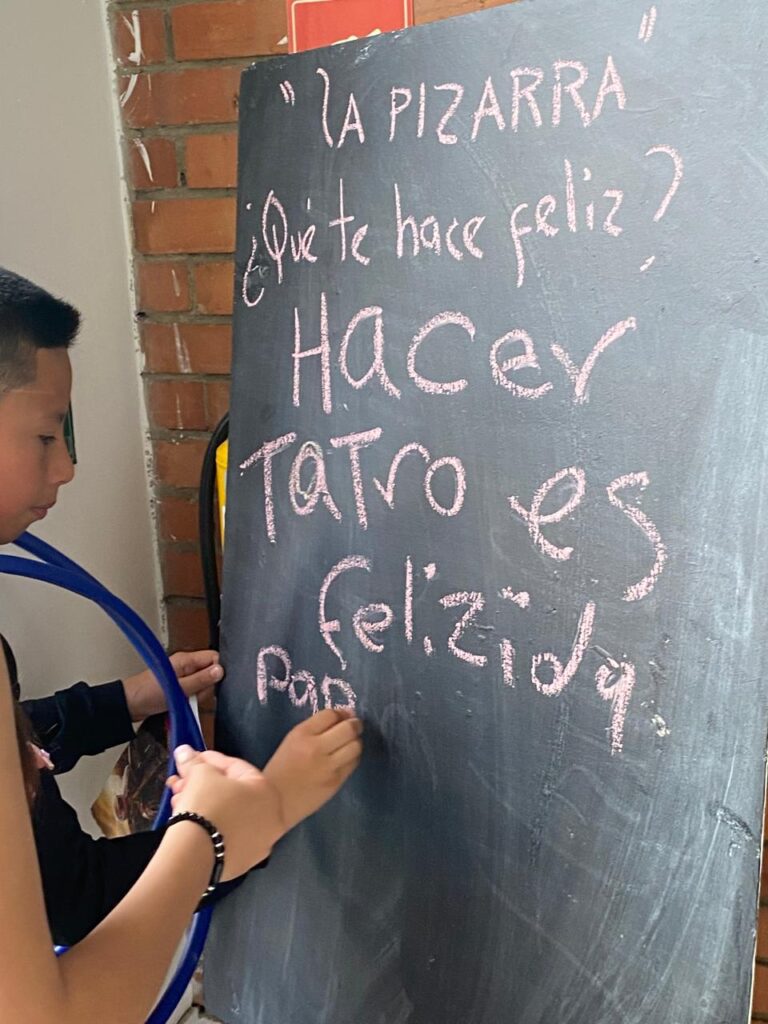 "LA PIZARRA"
¿Qué te hace feliz?
Hacer
TaTro es
felizida
pap